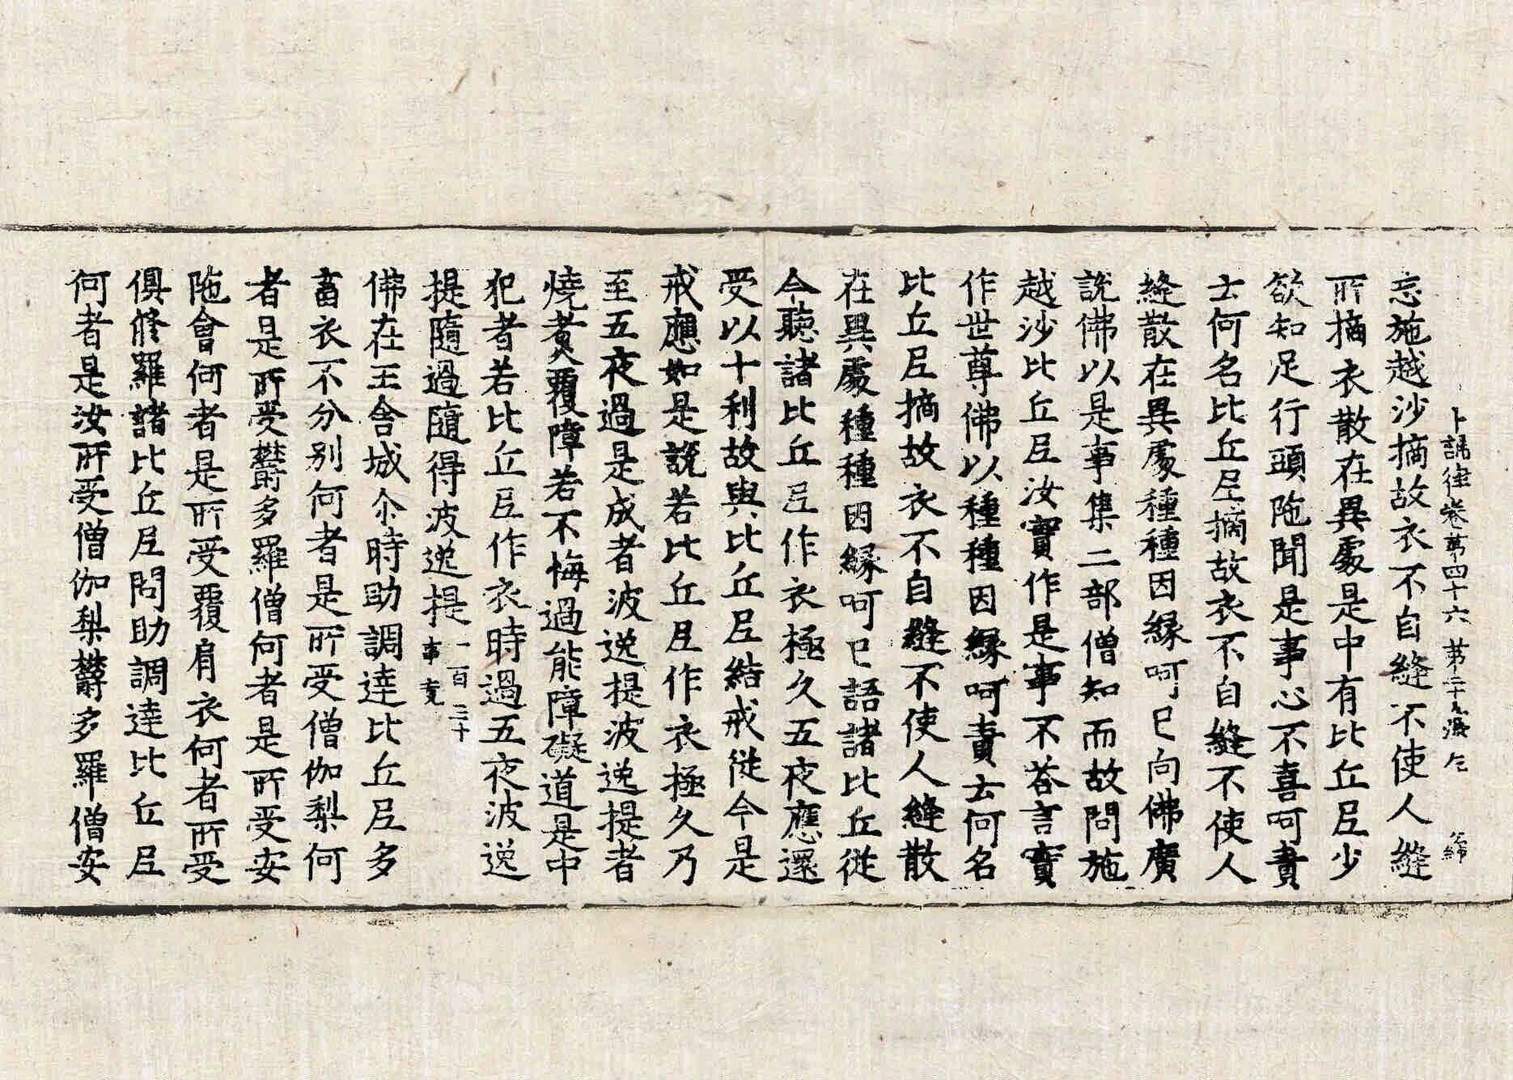 卜誦律卷第四十六 第二十九張 㐲 綿
忘施越沙摘故衣不自縫不使人縫
所摘衣散在異處是中有比丘尼少
欲知足行頭陁聞是事心不喜呵責
云何名比丘尼摘故衣不自縫不使人
縫散在異處種種因緣呵已向佛廣
說佛以是事集二部僧知而故問施
越沙比丘尼汝實作是事不荅言實
作世尊佛以種種因緣呵責云何名
比丘尼摘故衣不自縫不使人縫散
在異處種種因緣呵已語諸比丘從
今聽諸比丘尼作衣極久五夜應還
受以十利故與比丘尼結戒從今是
戒應如是說若比丘尼作衣極久乃
至五夜過是成者波逸提波逸提者
燒煑覆障若不悔過能障礙道是中
犯者若比丘尼作衣時過五夜波逸
提隨過隨得波逸提一百三十事竟
佛在王舍城尒時助調達比丘尼多
畜衣不分別何者是所受僧伽梨何
者是所受欝多羅僧何者是所受安
陁會何者是所受覆肩衣何者所受
俱修羅諸比丘尼問助調達比丘尼
何者是汝所受僧伽梨欝多羅僧安